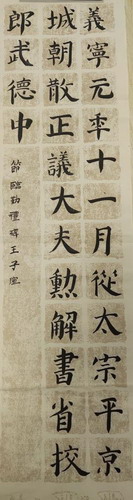 義寧元年十一月從太宗平京
城朝散正議大夫勳解書省挍
郎武德中
節臨勤禮碑 王子